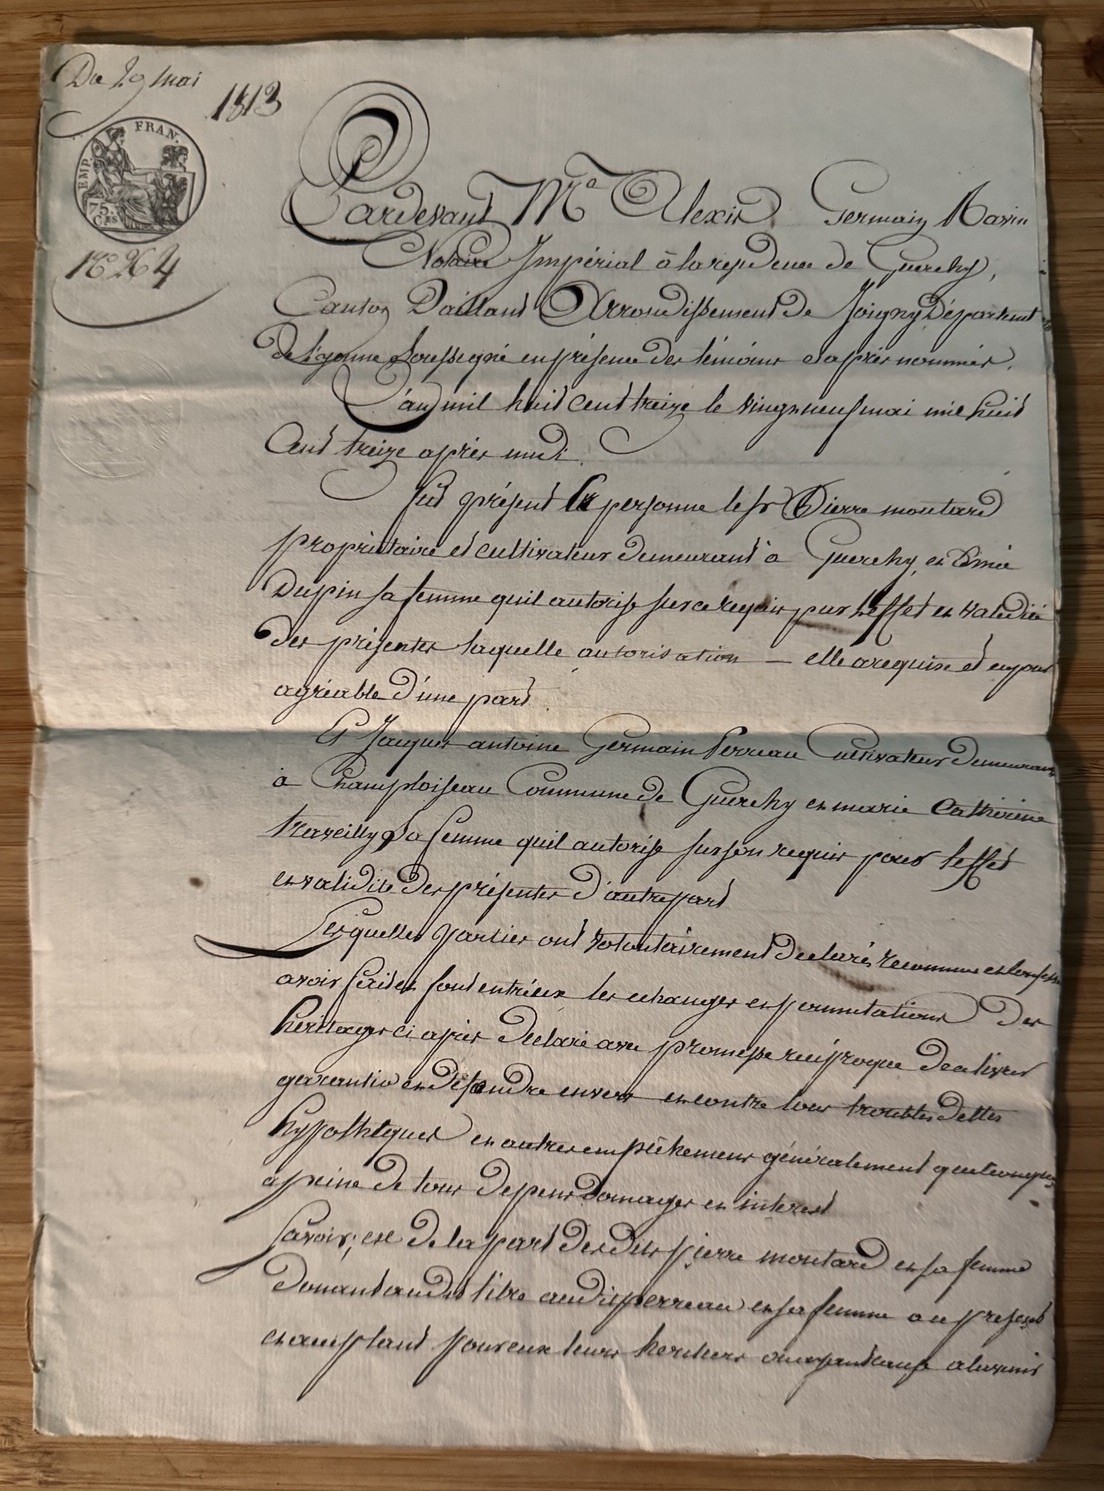 Du 29 mai
1813
EMP. FRAN.
75 Ces
N° 264
Pardevant Me Alexis Germain Marin
Notaire Impérial à la residence de Guerchy,
Canton Daillant Arrondissement de Joigny Département
de l'yonne soussigné en présence des témoins cy après nommés.
L'an mil huit cent treize le vingt neuf mai mil huit
Cent treize après midi.
fut présent en personne le sr Pierre moutard
propriétaire et cultivateur demeurant à Guerchy, et
Dupin sa femme quil autorise sur ce requis pour l'effet et validité
des présentes laquelle autorisation — elle a requise et eu pour
agréable d'une part.
Et Jacques antoine Germain Perreau Cultivateur demeurant
à Champloiseau Commune de Guerchy et marie Catherine
sa femme quil autorise sur son requis pour l'effet
et validité des présentes d'autre part
Lesquelles parties ont volontairement declarés reconnus et confessé
avoir fait et font entr'eux les echanges et permutations des
heritages ci après declaré avec promesse réciproque de
garantir et défendre envers et contre tous troubles dettes
hypotheques et autres empêchemens généralement quelconques
a peine de tous depens domages et interest
Savoir; est de la part desdits pierre moutard et sa femme
Donant audit titre audit perreau et sa femme ce present
et acceptant pour eux leurs heritiers ou ayant cause a l'avenir